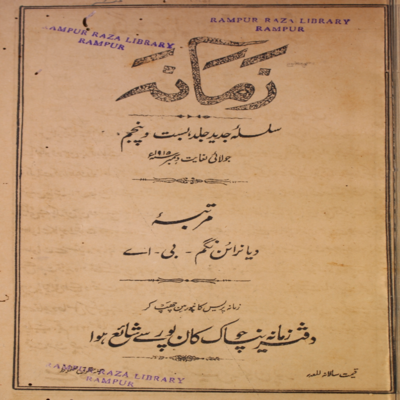 RAMPUR RAZA LIBRARY
RAMPUR
RAMPUR RAZA LIBRARY
RAMPUR
زمانہ
سلسلۂ جدید جلد بست و پنجم
جولائی لغایت دسمبر ۱۹۱۵ء
مرتبہ
دیا نرائن نگم - بی - اے
زمانہ پریس کانپور میں چھپ کر
دفتر زمانہ نیا چوک کان پور سے شائع ہوا
قیمت سالانہ
RAMPUR RAZA LIBRARY
RAMPUR